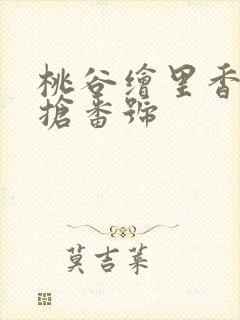 桃谷繪里香
搶番號
莫吉萊